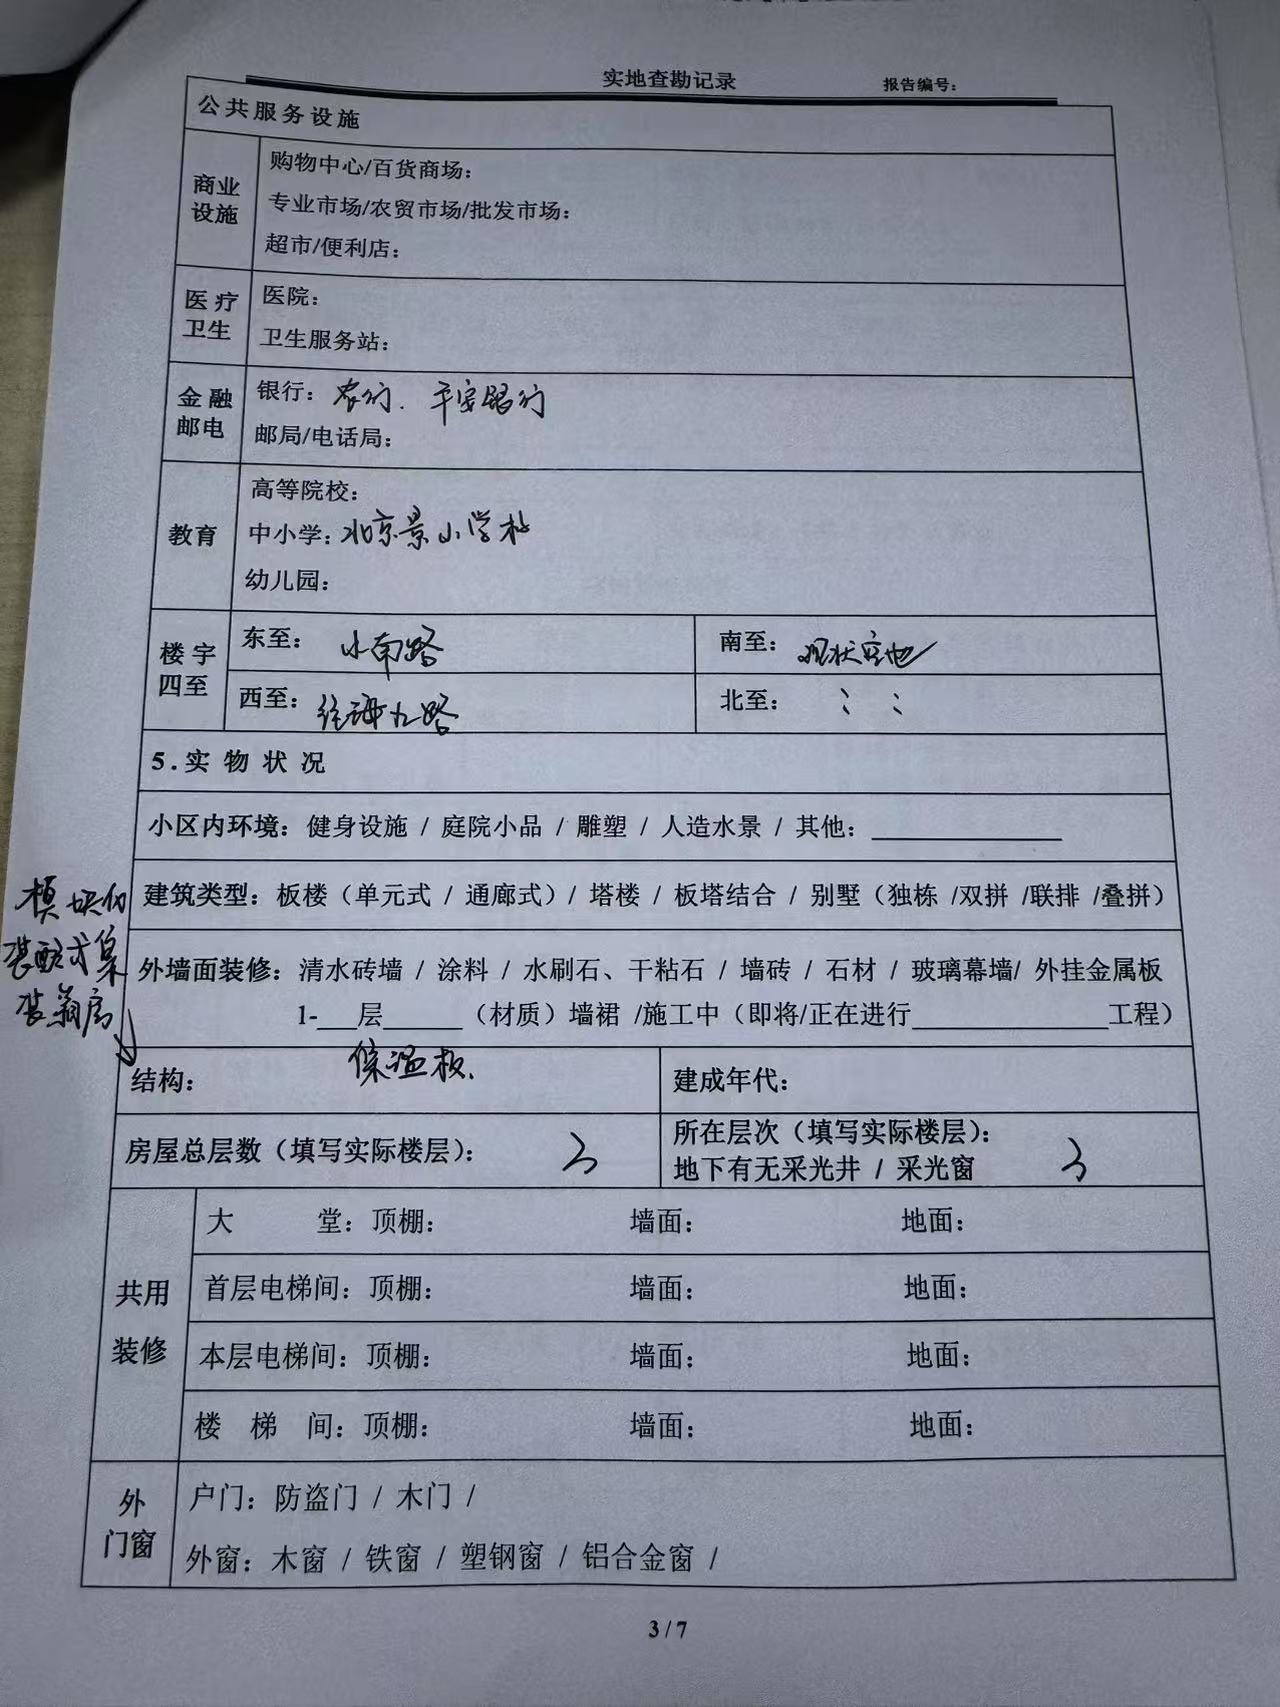 实地查勘记录 报告编号：
公共服务设施
商业设施
购物中心/百货商场：
专业市场/农贸市场/批发市场：
超市/便利店：
医疗卫生
医院：
卫生服务站：
金融邮电
银行：农行. 平安银行
邮局/电话局：
教育
高等院校：
中小学：北京景山学校
幼儿园：
楼宇四至
东至：水南路 南至：现状空地
西至：经海九路 北至：〃
5.实物状况
小区内环境：健身设施 / 庭院小品 / 雕塑 / 人造水景 / 其他：________
建筑类型：板楼（单元式 / 通廊式）/ 塔楼 / 板塔结合 / 别墅（独栋 /双拼 /联排 /叠拼）
模块化
装配式集
装箱房
外墙面装修：清水砖墙 / 涂料 / 水刷石、干粘石 / 墙砖 / 石材 / 玻璃幕墙/ 外挂金属板
1-___层______（材质）墙裙 /施工中（即将/正在进行______________工程）
保温板.
结构： 建成年代：
房屋总层数（填写实际楼层）： 3
所在层次（填写实际楼层）：
地下有无采光井 / 采光窗 3
共用装修
大 堂：顶棚： 墙面： 地面：
首层电梯间：顶棚： 墙面： 地面：
本层电梯间：顶棚： 墙面： 地面：
楼 梯 间：顶棚： 墙面： 地面：
外门窗
户门：防盗门 / 木门 /
外窗：木窗 / 铁窗 / 塑钢窗 / 铝合金窗 /
3 / 7